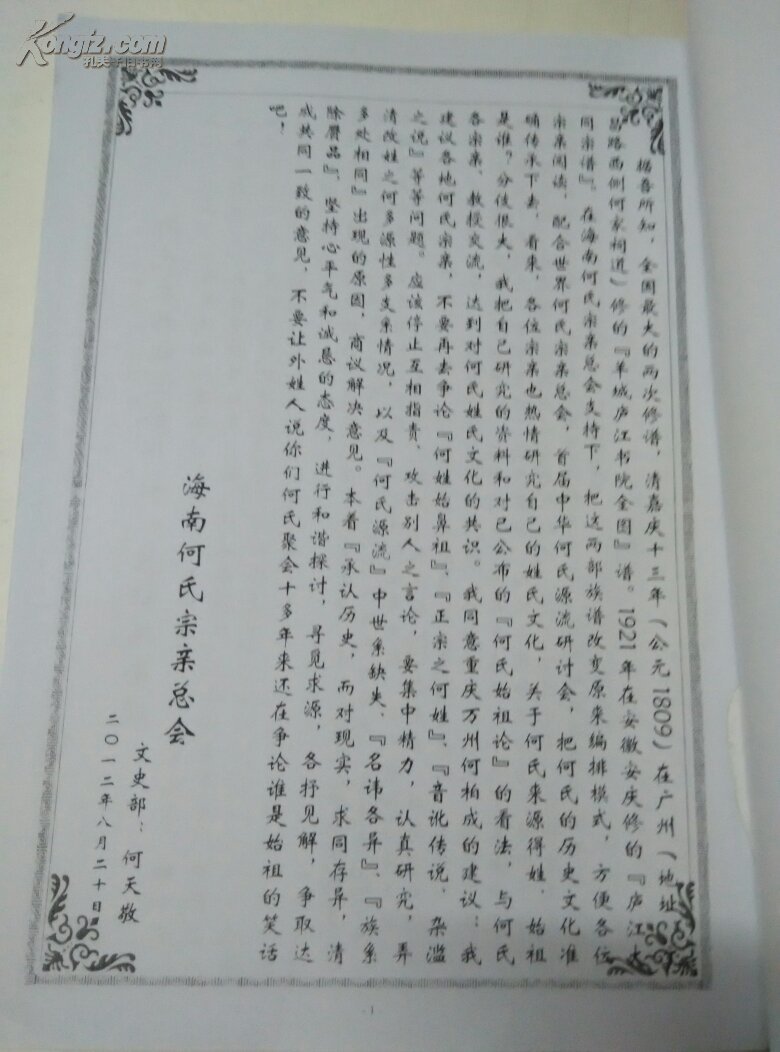 Kongfz.com
孔夫子旧书网
据吾所知，全国最大的两次修谱，清嘉庆十三年（公元1809）在广州（地址：
昌路西侧何家祠道）修的『羊城庐江书院全图』谱。1921年在安徽安庆修的『庐江大
同宗谱』。在海南何氏宗亲总会支持下，把这两部族谱改变原来编排模式，方便各位
宗亲阅读，配合世界何氏宗亲总会，首届中华何氏源流研讨会，把何氏的历史文化准
确传承下去，看来，各位宗亲也热情研究自己的姓氏文化，关于何氏来源得姓，始祖
是谁？分歧很大，我把自己研究的资料和对已公布的『何氏始祖论』的看法，与何氏
各宗亲、教授交流，达到对何氏姓氏文化的共识。我同意重庆万州何柏成的建议：我
建议各地何氏宗亲，不要再去争论『何姓始鼻祖』、『正宗之何姓』、『音讹传说，杂滥
之说』等等问题。应该停止互相指责、攻击别人之言论，要集中精力，认真研究，弄
清改姓之何多源性多支系情况，以及『何氏源流』中世系缺失、『名讳各异』、『族系
多处相同』出现的原因，商议解决意见。本着『承认历史，而对现实，求同存异，清
除赝品』，坚持心平气和诚恳的态度，进行和谐探讨，寻觅求源，各抒见解，争取达
成共同一致的意见，不要让外姓人说你们何氏聚会十多年来还在争论谁是始祖的笑话
吧！
海南何氏宗亲总会
文史部：何天敬
二〇一二年八月二十日
1